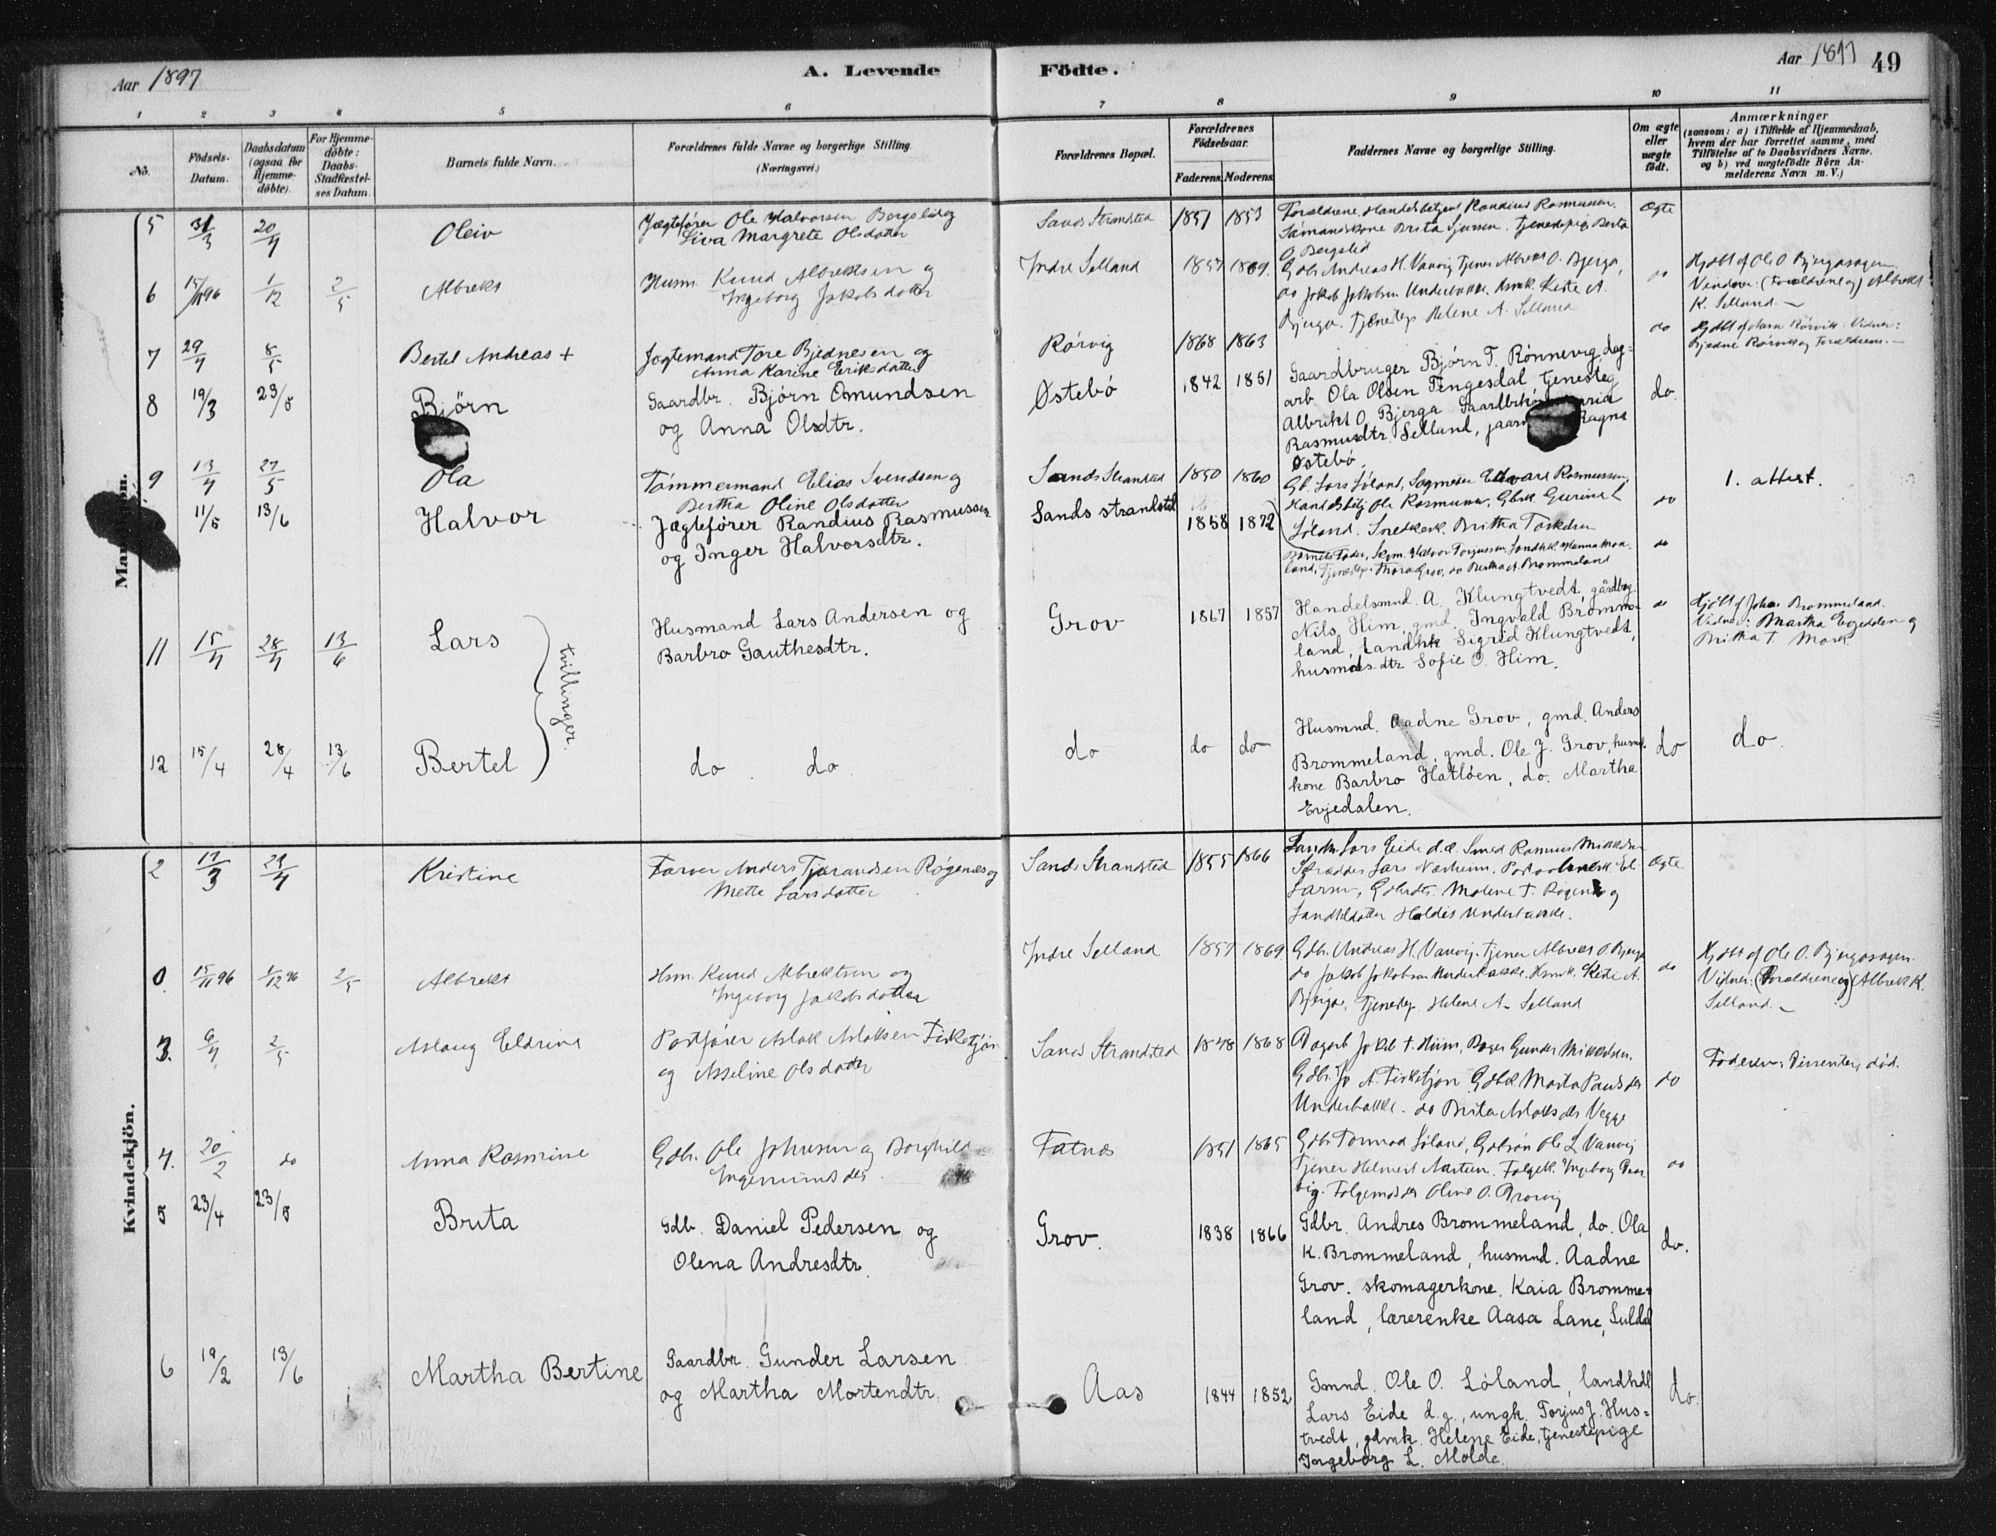 Aar 1897
A. Levende Födte.
Aar 1897
49
1 2 3 4 5 6 7 8 9 10 11
No.
Födsels-Datum.
Daabsdatum (ogsaa for Hjemmedöbte).
For Hjemmedöbte: Daabs-Stadfæstelses Datum.
Barnets fulde Navn.
Forældrenes fulde Navne og borgerlige Stilling (Næringsvei.)
Forældrenes Bopæl.
Forældrenes Födselsaar.
Faderens. Moderens.
Faddernes Navne og borgerlige Stilling.
Om ægte eller uægte födt.
Anmærkninger
(saasom: a) i Tilfælde af Hjemmedaab, hvem der har forrettet samme, med Tilföielse af to Daabsvidners Navne, og b) ved uægtefödte Börn Anmelderens Navn m. V.)
5 31/3 20/4 Oleiv
Jægtefører Ole Halvorsen Bergslid og
Siva Margrete Olsdatter
Sands Strandsted 1851 1853
Forældrene, Handelsbetjent Randius Rasmussen
Sømandskone Brita Sjursen. Tjenestepig. Berta
O. Bergslid
Ægte
6 15/11 96 1/12 2/5 Albrekt
Husm. Knud Albrektsen og
Ingeborg Jakobsdatter
Indre Selland 1857 1869.
Gdbr. Andreas H. Vanvig Tjener Albrekt O. Bjerga,
do Jakob Jakobsen Underbakke. Husmk. Kirte A.
Bjerga. Tjenestep. Helene A. Selland
do
Hjdbt. af Ole O. Bjergaskogen
Vidner: (Forældrene og) Albrekt
K. Selland.
7 29/4 8/5 Bertel Andreas +
Jægtemand Tore Bjednesen og
Anna Karine Eriksdatter
Rørvig 1868 1863
do
Hjdbt af
Bjedne Rørvik og Forældrene.
8 19/3 23/5 Björn
Gaardbr. Björn Omundsen
og Anna Olsdtr.
Østebö 1842 1851
Gaardbruger Björn T. Rönnevig, dag-
arb. Ola Olsen Tengesdal tjenesteg.
Albrikt O. Bjerga Gaardbrk. Maria
Rasmusdtr. Selland, Ragna
Østebö.
do.
9 13/4 27/5 Ola
Tømmermand Elias Svendsen og
Bertha Oline Olsdatter
Sands Strandsted 1850 1860
Gb. Lars Løland, Sagmester Edvard Rasmussen,
Handelsbetj. Ole Rasmussen, Gbk. Gurine L
Løland. Snedkerk. Britha Torkelsen
do
1. attest.
11/5 13/6 Halvor
Jægtefører Randius Rasmussen
og Inger Halvorsdtr.
Sands strandsted 1858 1872
Barnets Fader, Skipm. Halvor Torgersen, Landhk. Hanna Moa
land, Tjenestep. Thora Grov, do Bertha A. Brommeland
do
11 15/4 28/4 13/6 Lars
Husmand Lars Andersen og
Barbro Gauthesdtr.
Grov 1867 1857
Handelsmnd. A. Klungtvedt, gårdbrg
Nils Him, gmd. Ingvald Bromme-
land, Landhk Sigrid Klungtvedt,
husmdsdtr Sofie O. Him.
do
Hjdbt af Johan Brommeland.
Vidner: Martha Evjedalen og
Britha T. Mork
tvillinger.
12 15/4 28/4 13/6 Bertel
do do
do do do
Husmnd. Aadne Grov, gmd. Anders
Brommeland, gmd. Ole J. Grov, husmk.
kone Barbro Hatlöen, do. Martha
Evjedalen.
do do.
Mandkjön.
2 17/3 29/4 Kristine
Farver Anders Tjerandsen Røgenes og
Mette Larsdatter
Sands Strandsted 1855 1866
Landh. Lars Eide d.æ. Smed Rasmus Mikkelsen
Skrædder Lars Nærheim. El
Larsen, Gdbrdtr. Malene T. Røgenes og
Landhldatter Haldis Underbakke.
Ægte
0 15/11 96 1/12 96 2/5 Albrekt
Hsm. Knud Albrektsen og
Ingeborg Jakobsdatter
Indre Selland 1857 1869
Gdbr. Andreas H. Vanvig. Tjener Albrekt O. Bjerga
do Jakob Jakobsen Underbakke. Husmk. Kirte A.
Bjerga, Tjenestep. Helene A. Selland
do
Hjdbt af Ole O. Bjergaskogen.
Vidner: (Forældrene og) Albrekt K.
Selland.
3. 6/4 2/5 Aslaug Eldrine
Postfører Aslak Aslaksen Fisketjøn
og Asseline Olsdatter
Sands Strandsted 1848 1868
Dagarb Jakob T. Hiim, Bager Gunder Mikkelsen.
Gdbr. Jo A. Fisketjøn Gdbk Marta Paulsdtr
Underbakke. do Brita Aslaksdtr Vegge
do
Faderen: Dissenter, död.
4. 20/2 do Anna Rasmine
Gdbr. Ole Johnsen og Borghild
Ingemundsdtr.
Fatnes 1851 1865
Gdbr Tormod Løland, Gdbrsøn Ole L Vanvig
Tjener Helmert Nærtun. Folgek. Ingeborg
vig. Folgemdsdtr Oline O.
do
5 23/4 23/5 Brita
Gdb. Daniel Pedersen og
Olena Andresdtr.
Grov. 1838 1866
Gdbr. Andres Brommeland, do. Ola
K. Brommeland, husmnd. Aadne
Grov. skomagerkone. Kaia Bromme-
land, lærerenke Aasa Lane, Suldal
do.
6 19/2 13/6 Martha Bertine
Gaardbr. Gunder Larsen
og Martha Mortendtr.
Aas 1844 1852
Gmnd. Ole O. Löland, landhdl
Lars Eide d.y., ungk. Torjus J. Hus-
tvedt, gdmk. Helene Eide, tjenestepige
Ingeborg L. Molde.
do.
Kvindekjön.